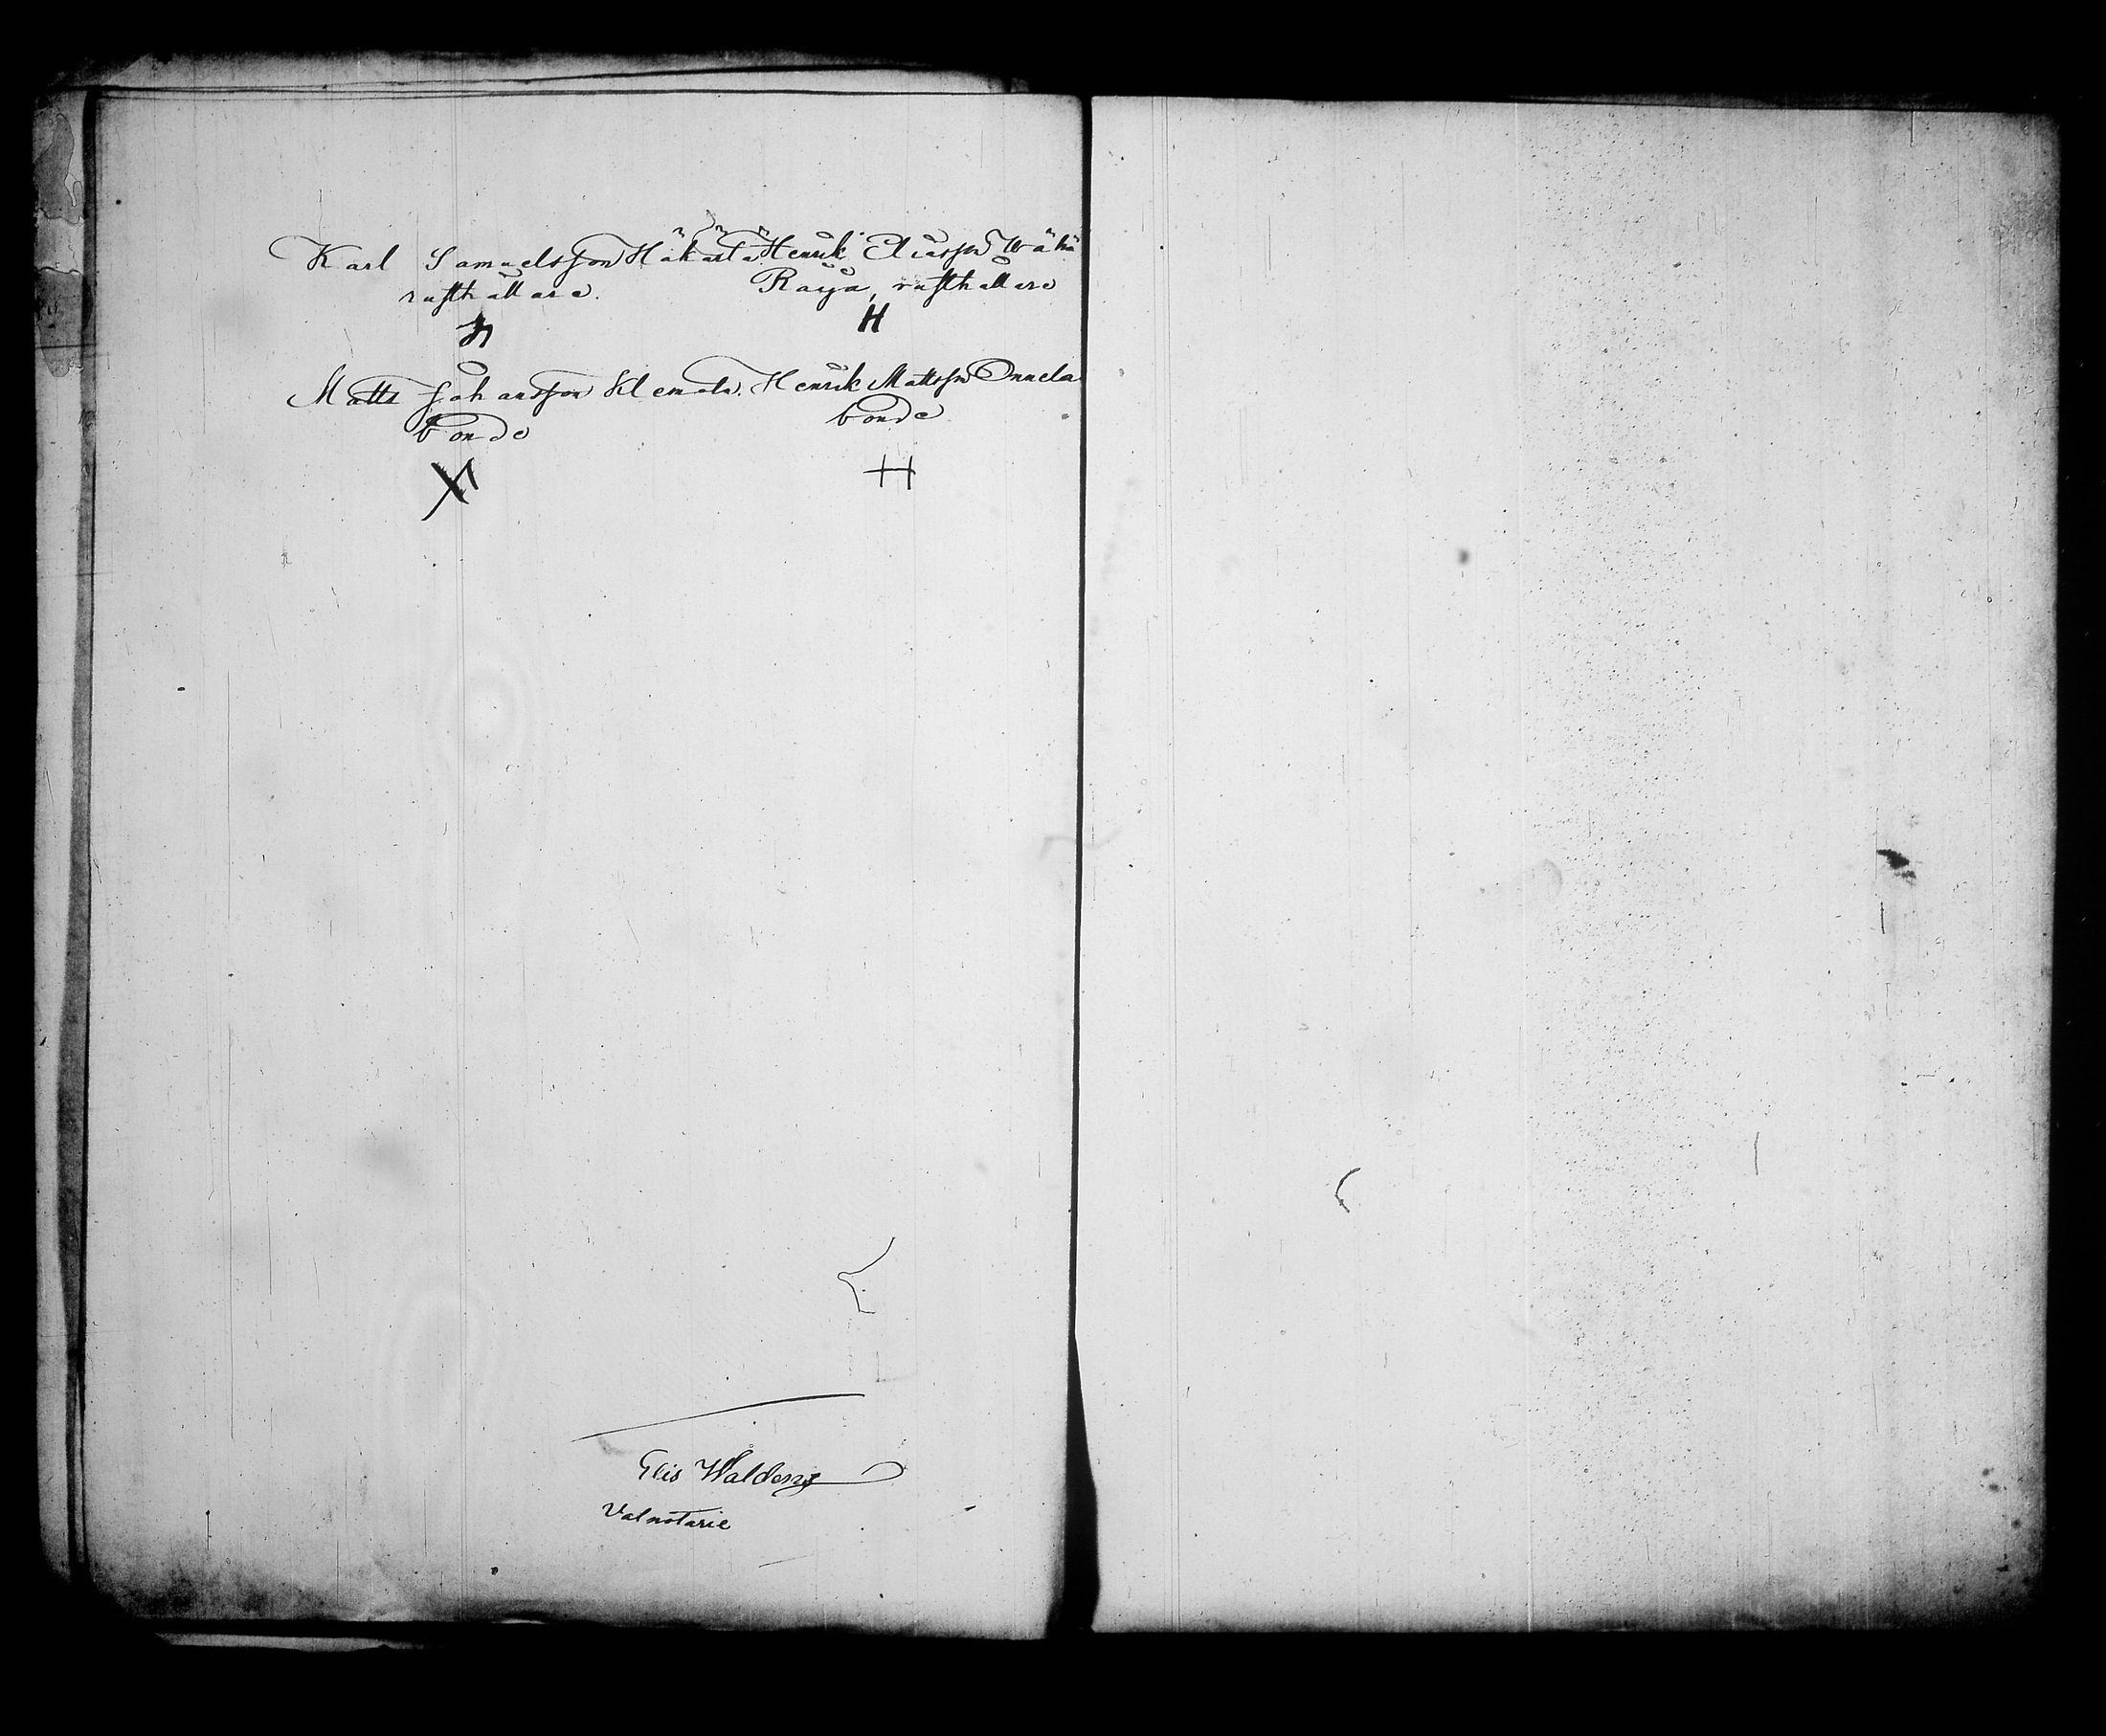 Karl Samuelsson Häkärlä Henrik Eliasson Wähä
rusthållare. Raija, rusthållare
Matts Johansson Klemola. Henrik Mattsson Onnela
bonde bonde
Elis
Valnotarie